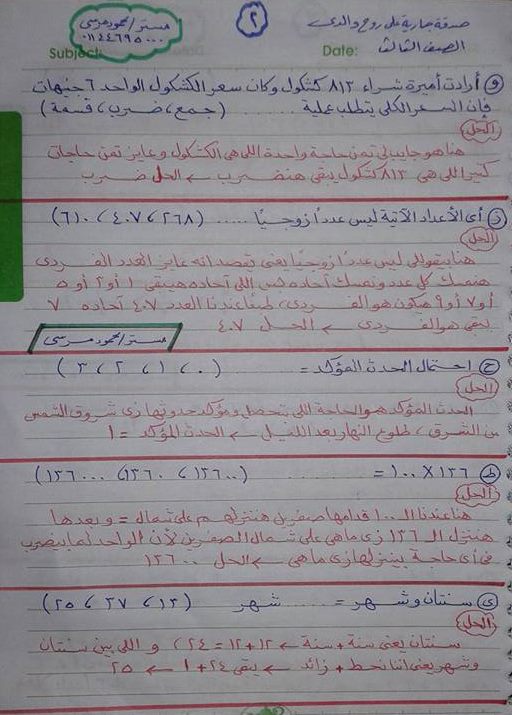 صدقة جارية على روح والدى
٢
مستر/محمود مرسى
٠١١٤٤٦٩٥٠٠٠
الصف الثالث
Date:
Subject:
و) أرادت أميرة شراء ٨١٣ كشكول وكان سعر الكشكول الواحد ٦ جنيهات
فإن السعر الكلى يتطلب عملية ........ (جمع ، ضرب ، قسمة)
الحل
هنا هو جايبلى تمن حاجة واحدة اللى هى الكشكول وعايز تمن حاجات
كتير اللى هى ٨١٣ كشكول يبقى هنضرب ← الحل ضرب
ز) أى الأعداد الآتية ليس عدداً زوجيًا ...... (٢٦٨ ، ٤٠٧ ، ٦١٠)
الحل
هنا بيقوللى ليس عدداً زوجيًا يعنى يقصد انه عايز العدد الفردى
هنمسك كل عدد ونمسك آحاده بس اللى آحاده هيبقى ١ أو ٣ أو ٥
أو ٧ أو ٩ هيكون هو الفردى ، طبعًا عندنا العدد ٤٠٧ آحاده ٧
يبقى هو الفردى ← الحل ٤٠٧
مستر/محمود مرسى
ح) احتمال الحدث المؤكد = ........ (٠ ، ١ ، ٢ ، ٣)
الحل
الحدث المؤكد هو الحاجة اللى بتحصل ومؤكد حدوثها زى شروق الشمس
من الشرق ، طلوع النهار بعد الليل ← الحدث المؤكد = ١
ط) ١٣٦ × ١٠٠ = ........ (١٣٦٠٠ ، ١٣٦٠ ، ١٣٦٠٠٠)
الحل
هنا عندنا الـ ١٠٠ قدامها صفرين هننزلهم على شمال = وبعدها
هننزل الـ ١٣٦ زى ماهى على شمال الصفرين لأن الواحد لما بيضرب
فى أى حاجة بينزلها زى ماهى ← الحل ١٣٦٠٠
ى) سنتان وشهر = ........ شهر (١٣ ، ٣٧ ، ٢٥)
الحل
سنتان يعنى سنة + سنة ← ١٢ + ١٢ = ٢٤ ، و اللى بين سنتان
وشهر يعنى اننا نحط + زائد ← يبقى ٢٤ + ١ ← ٢٥